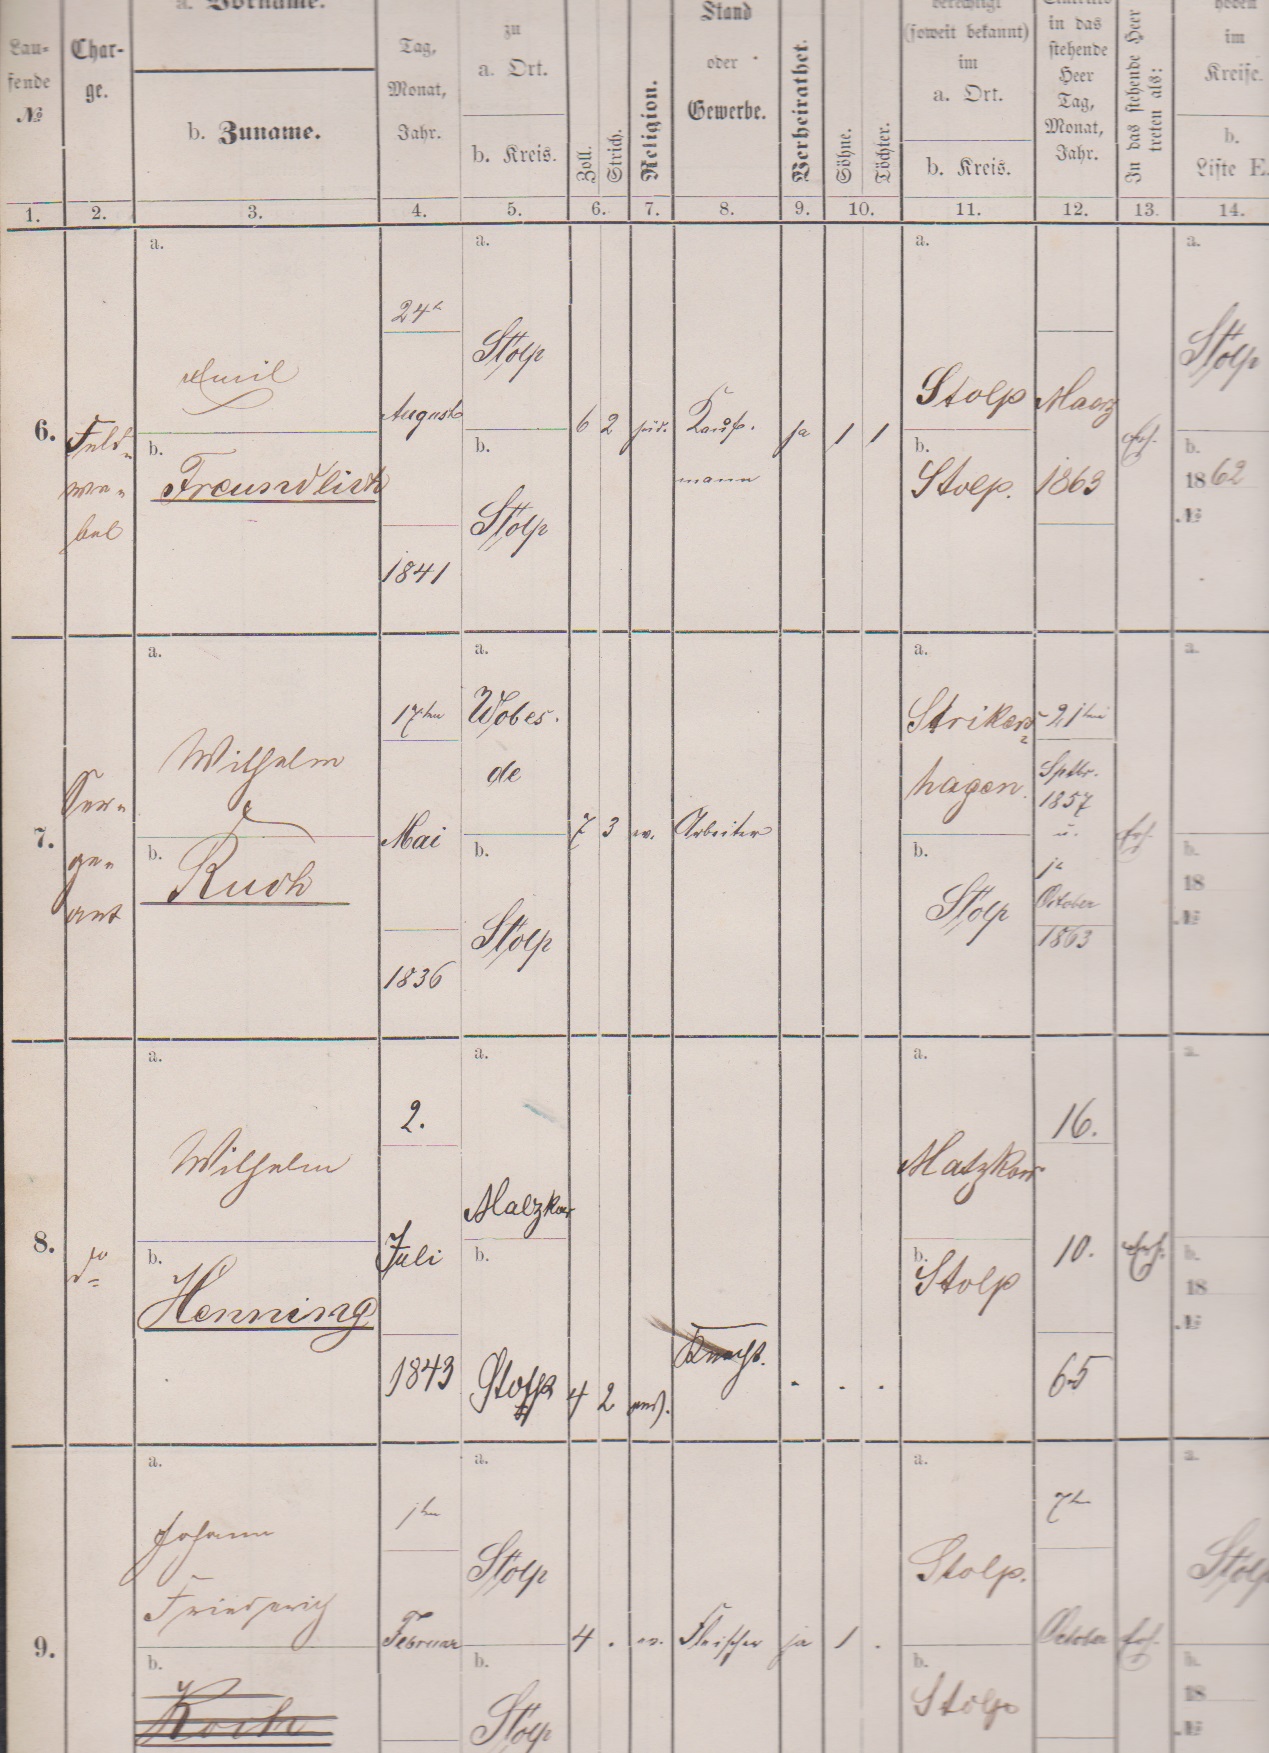 a. Vorname.
Lau-
fende
№
Char-
ge.
b. Zuname.
Tag,
Monat,
Jahr.
zu
a. Ort.
b. Kreis.
Zoll.
Strich.
Religion.
Stand
oder
Gewerbe.
Verheirathet.
Söhne.
Töchter.
berechtigt
(soweit bekannt)
im
a. Ort.
b. Kreis.
in das
stehende
Heer
Tag,
Monat,
Jahr.
In das stehende Heer
treten als:
hoben
im
Kreise.
b.
Liste E.
1. 2. 3. 4. 5. 6. 7. 8. 9. 10. 11. 12. 13. 14.
6.
Feld-
we-
bel
a.
Emil
b.
Freundlich
24
August
1841
a.
Stolp
b.
Stolp
6 2 jüd. Kauf-
mann
ja 1 1
a.
Stolp
b.
Stolp.
Maerz
1863
a.
Stolp
b.
1862
№
7.
Ser-
ge-
ant
a.
Wilhelm
b.
Ruch
17ten
Mai
1836
a.
Wobes-
de
b.
Stolp
7 3 ev. Arbeiter
a.
hagen.
b.
Stolp
21ten
Sptbr.
1857
u.
October
1863
a.
b.
18
№
8.
do
a.
Wilhelm
b.
Henning
2.
Juli
1843
a.
Matzkow
b.
Stolp
4 2
Knecht.
. . .
a.
Matzkow
b.
Stolp
16.
10.
65
a.
b.
18
№
9.
a.
Johann
Friedrich
b.
Koch
1ten
Februar
a.
Stolp
b.
Stolp
4 . ev. Fleischer ja 1 .
a.
Stolp.
b.
Stolp
7ten
October
a.
Stolp
b.
18
№